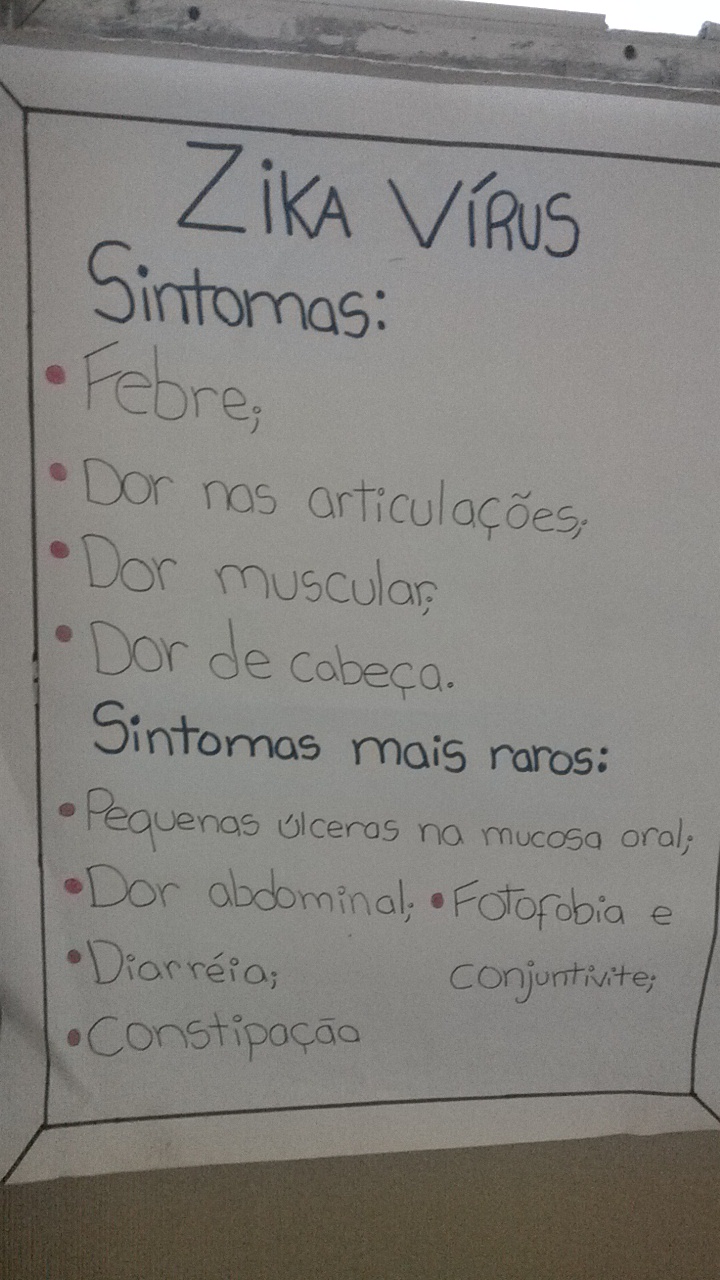 ZiKA VÍRUS
Sintomas:
• Febre;
• Dor nas articulações;
• Dor muscular;
• Dor de cabeça.
Sintomas mais raros:
• Pequenas úlceras na mucosa oral;
• Dor abdominal; • Fotofobia e
• Diarréia; conjuntivite;
• Constipação